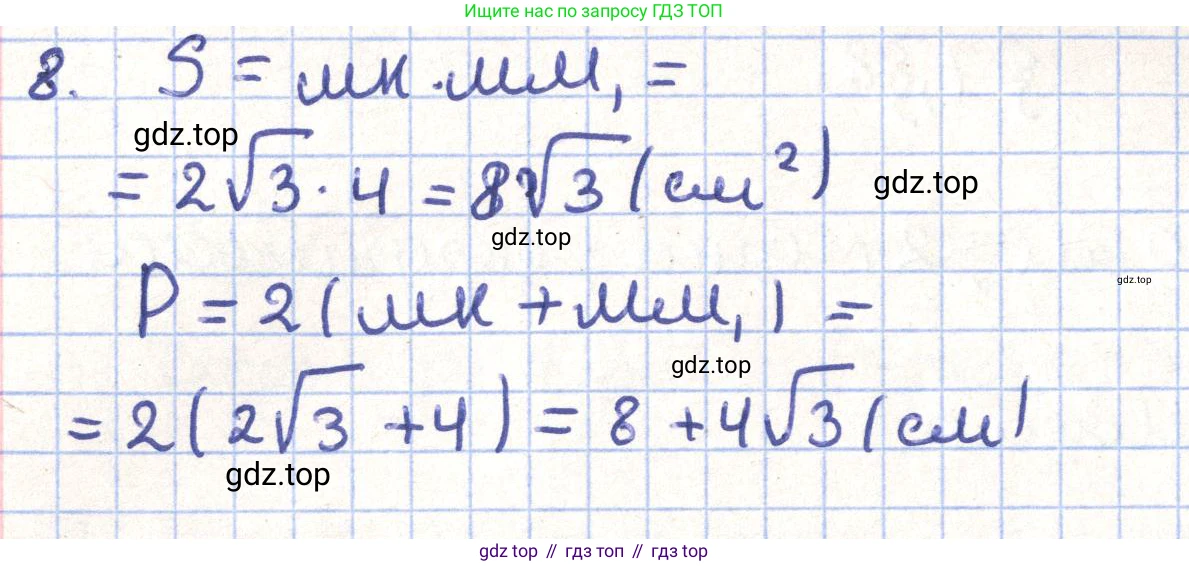 Ищите нас по запросу ГДЗ ТОП
8. S = МК · ММ₁ =
gdz.top
= 2√3 · 4 = 8√3 (см²)
gdz.top
gdz.top
P = 2(МК + ММ₁) =
gdz.top
gdz.top
= 2(2√3 + 4) = 8 + 4√3 (см)
gdz.top
gdz top // гдз топ // гдз top